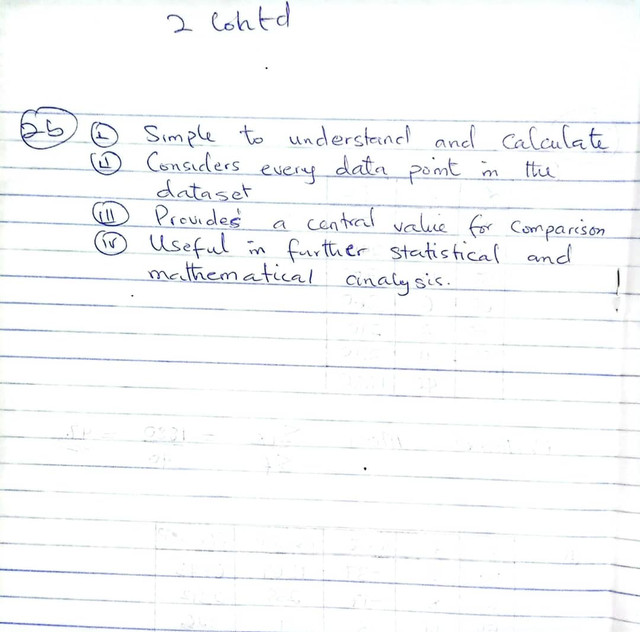 2 Contd
2b (i) Simple to understand and calculate
(ii) Considers every data point in the
dataset
(iii) Provides a central value for comparison
(iv) Useful in further statistical and
mathematical analysis.